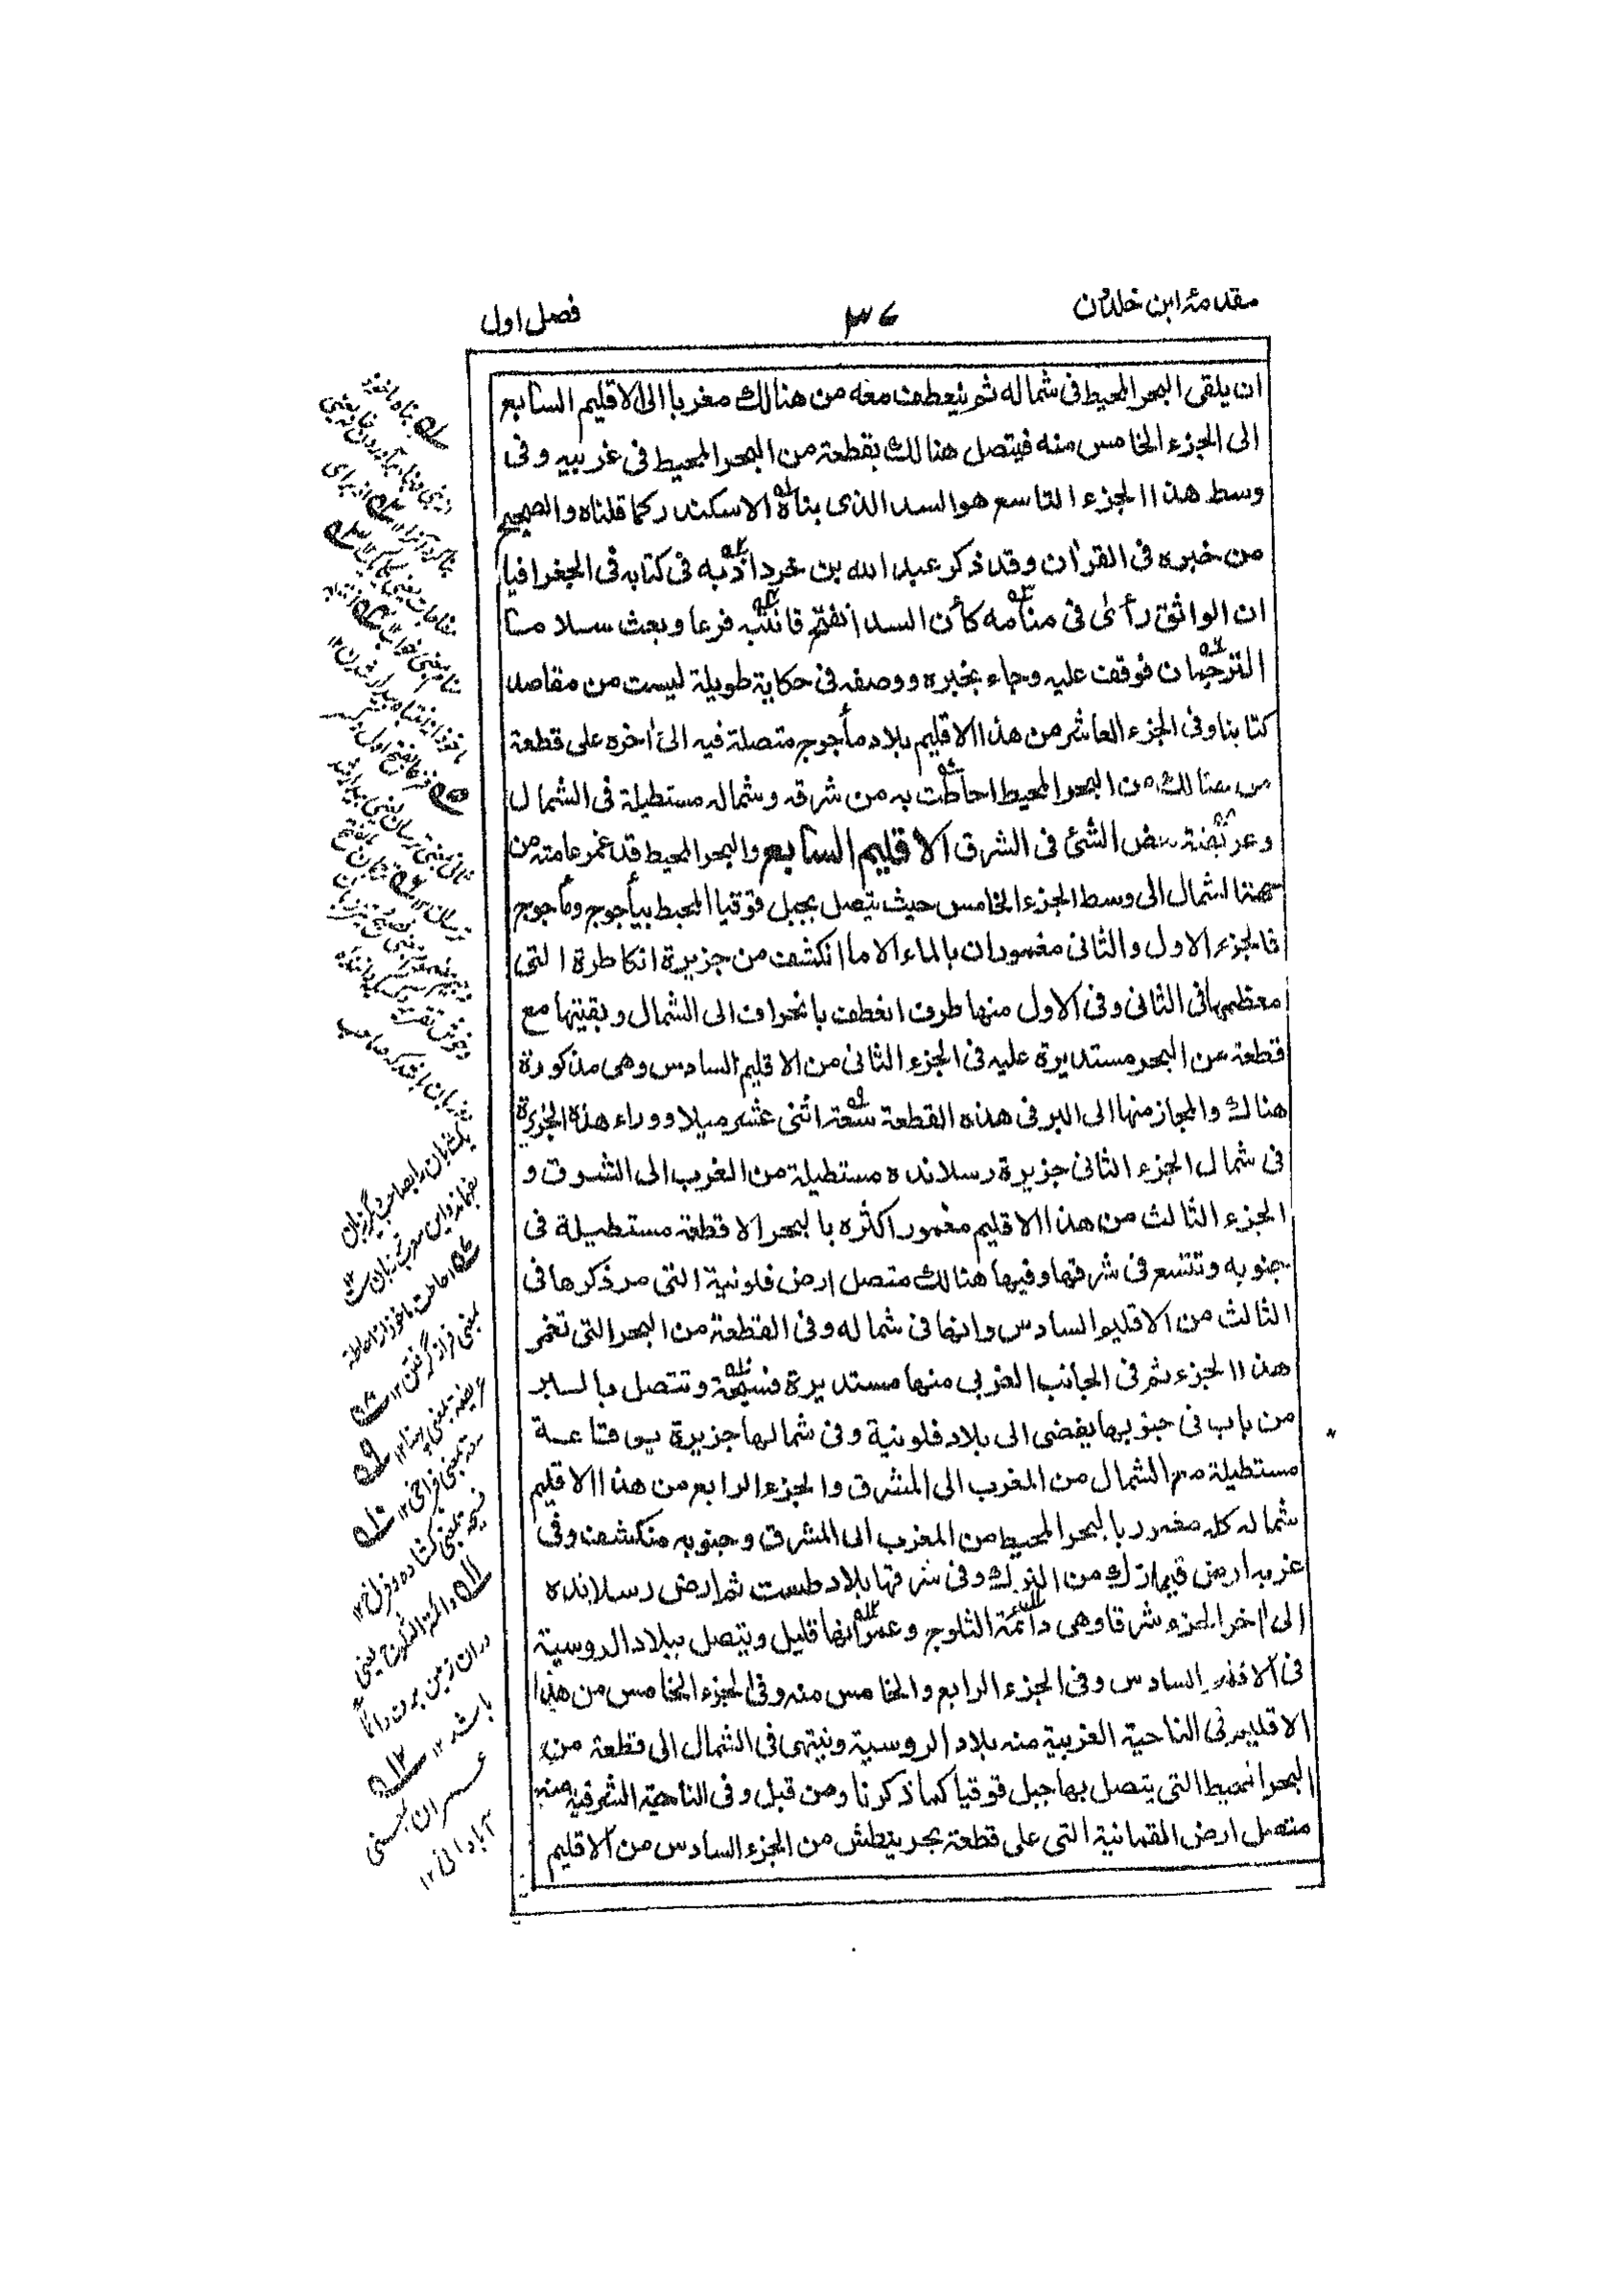 مقدمۂ ابن خلدون
٣٧
فصل اول
ان يلقى البحر المحيط فى شماله ثم ينعطف معه من هنالك مغربا الى الاقليم السابع
الى الجزء الخامس منه فيتصل هنالك بقطعة من البحر المحيط فى غربيه وفى
وسط هذا الجزء التاسع هو السد الذى بناه الاسكندر كما قلناه والصحيح
من خبره فى القرأن وقد ذكر عبد الله بن خرداذبه فى كتابه فى الجغرافيا
ان الواثق رأى فى منامه كأن السد انفتح فانتبه فزعا وبعث سلاما
الترجمان فوقف عليه وجاء بخبره ووصفه فى حكاية طويلة ليست من مقاصد
كتابنا وفى الجزء العاشر من هذا الاقليم بلاد مأجوج متصلة فيه الى أخره على قطعة
من هنالك من البحر المحيط احاطت به من شرقه وشماله مستطيلة فى الشمال
وعريضة بعض الشئ فى الشرق الاقليم السابع والبحر المحيط قد غمر عامته من
جهة الشمال الى وسط الجزء الخامس حيث يتصل بجبل قوقيا المحيط بيأجوج ومأجوج
فالجزء الاول والثانى مغموران بالماء الا ما انكشف من جزيرة انكاطرة التى
معظمها فى الثانى وفى الاول منها طرف انعطف بانحراف الى الشمال وبقيتها مع
قطعة من البحر مستديرة عليه فى الجزء الثانى من الاقليم السادس وهى مذكورة
هناك والمجاز منها الى البر فى هذه القطعة سعة اثنى عشر ميلا ووراء هذه الجزيرة
فى شمال الجزء الثانى جزيرة رسلانده مستطيلة من الغرب الى الشرق و
الجزء الثالث من هذا الاقليم مغمور اكثره بالبحر الا قطعة مستطيلة فى
جنوبه وتتسع فى شرقها وفيها هنالك متصل ارض فلونية التى مر ذكرها فى
الثالث من الاقليم السادس وانها فى شماله وفى القطعة من البحر التى تغمر
هذا الجزء ثم فى الجانب الغربى منها مستديرة فسيحة وتتصل بالبر
من باب فى جنوبها يفضى الى بلاد فلونية وفى شمالها جزيرة بوقاعة
مستطيلة مع الشمال من المغرب الى المشرق والجزء الرابع من هذا الاقليم
شماله كله مغمور بالبحر المحيط من المغرب الى المشرق وجنوبه منكشف وفى
غربه ارض قيمازك من الترك وفى شرقها بلاد طست ثم ارض رسلانده
الى أخر الجزء شرقا وهى دائمة الثلوج وعمرانها قليل ويتصل ببلاد الروسية
فى الاقليم السادس وفى الجزء الرابع والخامس منه وفى الجزء الخامس من هذا
الاقليم فى الناحية الغربية منه بلاد الروسية وينتهى فى الشمال الى قطعة من
البحر المحيط التى يتصل بها جبل قوقيا كما ذكرنا ومن قبل وفى الناحية الشرقية منه
متصل ارض القمانية التى على قطعة بحر ينطش من الجزء السادس من الاقليم
احاطت ماخوذ از احاطة
بمعنى فراز گرفتن ١٢
فسيحة بمعنى كشاده وفراخ ١٢
دائمة الثلوج يعنى
دران زمين برف دائما
باشد ١٢
عمران بمعنى
آبادانى ١٢